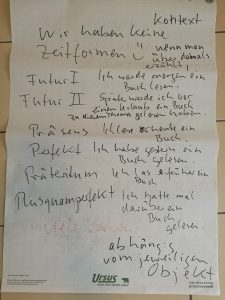 Kontext
Wir haben keine
Zeitformen wenn man
über damals
erzählt
Futur I Ich werde morgen ein
Buch lesen.
Futur II Später werde ich vor
einem Urlaub ein Buch
zu gelesen haben
Präsens Ich lese heute ein
Buch.
Perfekt Ich habe gestern ein
Buch gelesen.
Präteritum Ich las früher ein
Buch
Plusquamperfekt Ich hatte mal
darüber ein
Buch
gelesen.
viele
abhängig
vom jeweiligen
Objekt
Ursus